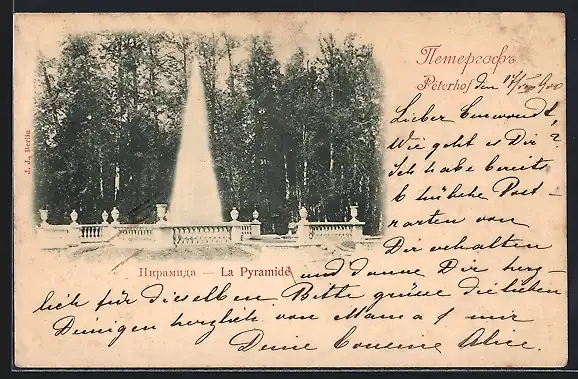 Петергофъ
Peterhof den
Lieber
Wie geht es Dir?
Ich habe bereits
6 hübche Post-
karten von
Dir erhalten
Пирамида — La Pyramide
und danne Dir herz-
lich für dieselben. Bitte grüsse die lieben
Deinigen herzlich von Mama & mir
Deine Cousine Alice.
J. J., Berlin